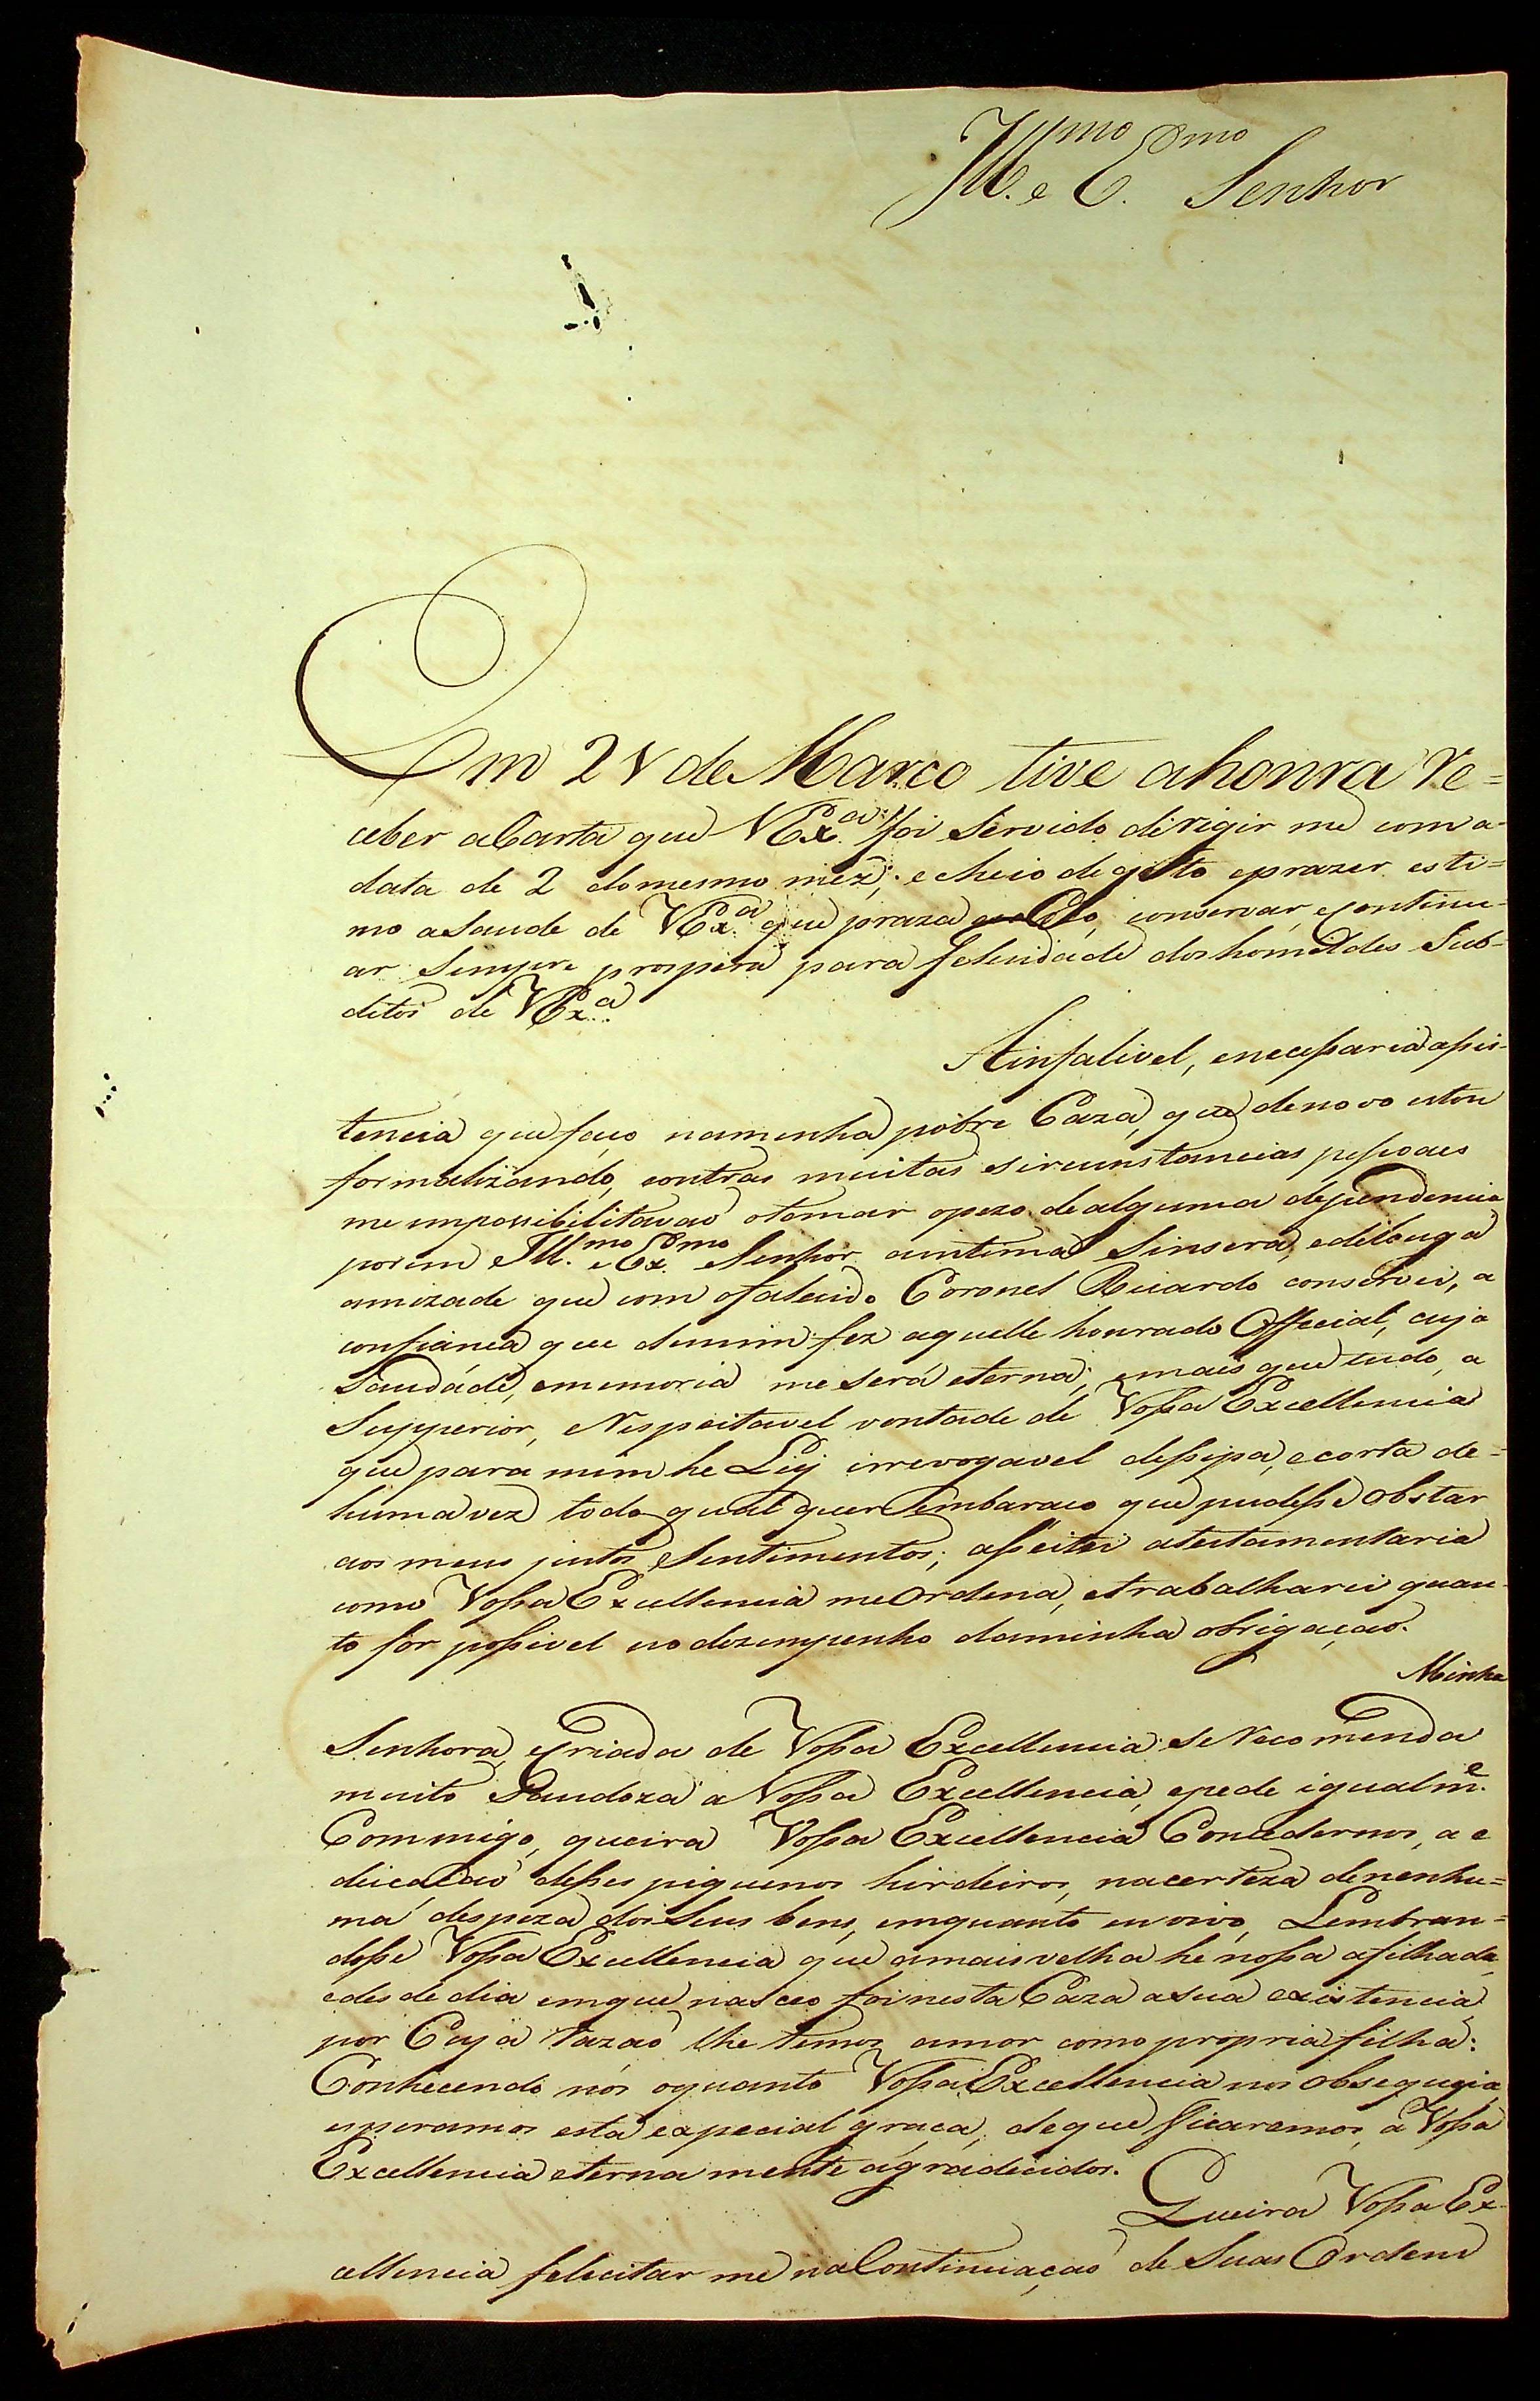 Ill.mo e E.mo Senhor
Em 2V de Março tive a honra Re=
ceber a Carta que VEx.a foi Servido dirigir me com a
data de 2 do mesmo mez; e cheio de gosto e prazer esti=
mo a Saude de VEx.a que praza Ceo, conservar, e continu-
ar Sempre prospera para felicidade dos homildes Sub-
ditos de VEx.a
A infalivel, e necessaria assis-
tencia que faço na minha pobre Caza, que de novo estou
formalizando, e outras muitas sircunstancias pessoaes
me impossibilitavaõ o tomar o pezo de alguma dependencia
porem Ill.mo e Ex.mo Senhor a intima Sinsera, e de longa
amizade que com o falecido Coronel Ricardo conservei, a
confiança que de mim fez aquelle honrado Official, cuja
Saudáde, e memoria me será eterna; e mais que tudo, a
Supperior, e Respeitavel vontade de Vossa Excellencia
que para mim he Ley irrevogavel dessipa, e corta de=
huma vez todo qualquer embaraço que pudesse Obstar
aos meus justos Sentimentos; asseitei a testamentaria
como Vossa Excellencia me Ordena, e trabalharei quan-
to for possivel no dezempenho da minha obrigaçaõ.
Minha
Senhora, e Criada de Vossa Excellencia Se Recomenda
muito Saudoza a Vossa Excellencia, e pede igualm.e
Commigo, queira Vossa Excellencia Concedernos, a e
ducaçaõ desses piquenos hirdeiros, na certeza de nenhu=
ma despeza dos Seus bens, emquanto eu vivo, Lembran=
dosse Vossa Excellencia que a mais velha he nossa afilhada,
e des de dia em que nasceo foi nesta Caza a sua existencia
por Cuja razaõ lhe temos amor como propria filha:
Conhecendo nós o quanto Vossa Excellencia nos obsequeia
esperamos esta expecial graça, de que ficaremos, a Vossa
Excellencia eternamente agradecidos.
Queira Vossa Ex-
cellencia felecitar me na Continuaçaõ de Suas Ordens